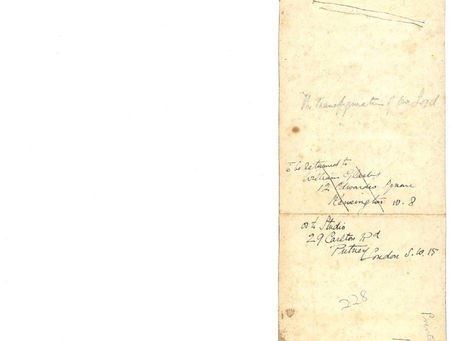 The Transfiguration of our Lord
To be returned to
William
12 Edwardes Square
Kensington W. 8
Studio
29 Carlton Rd
Putney London S.W. 15
228